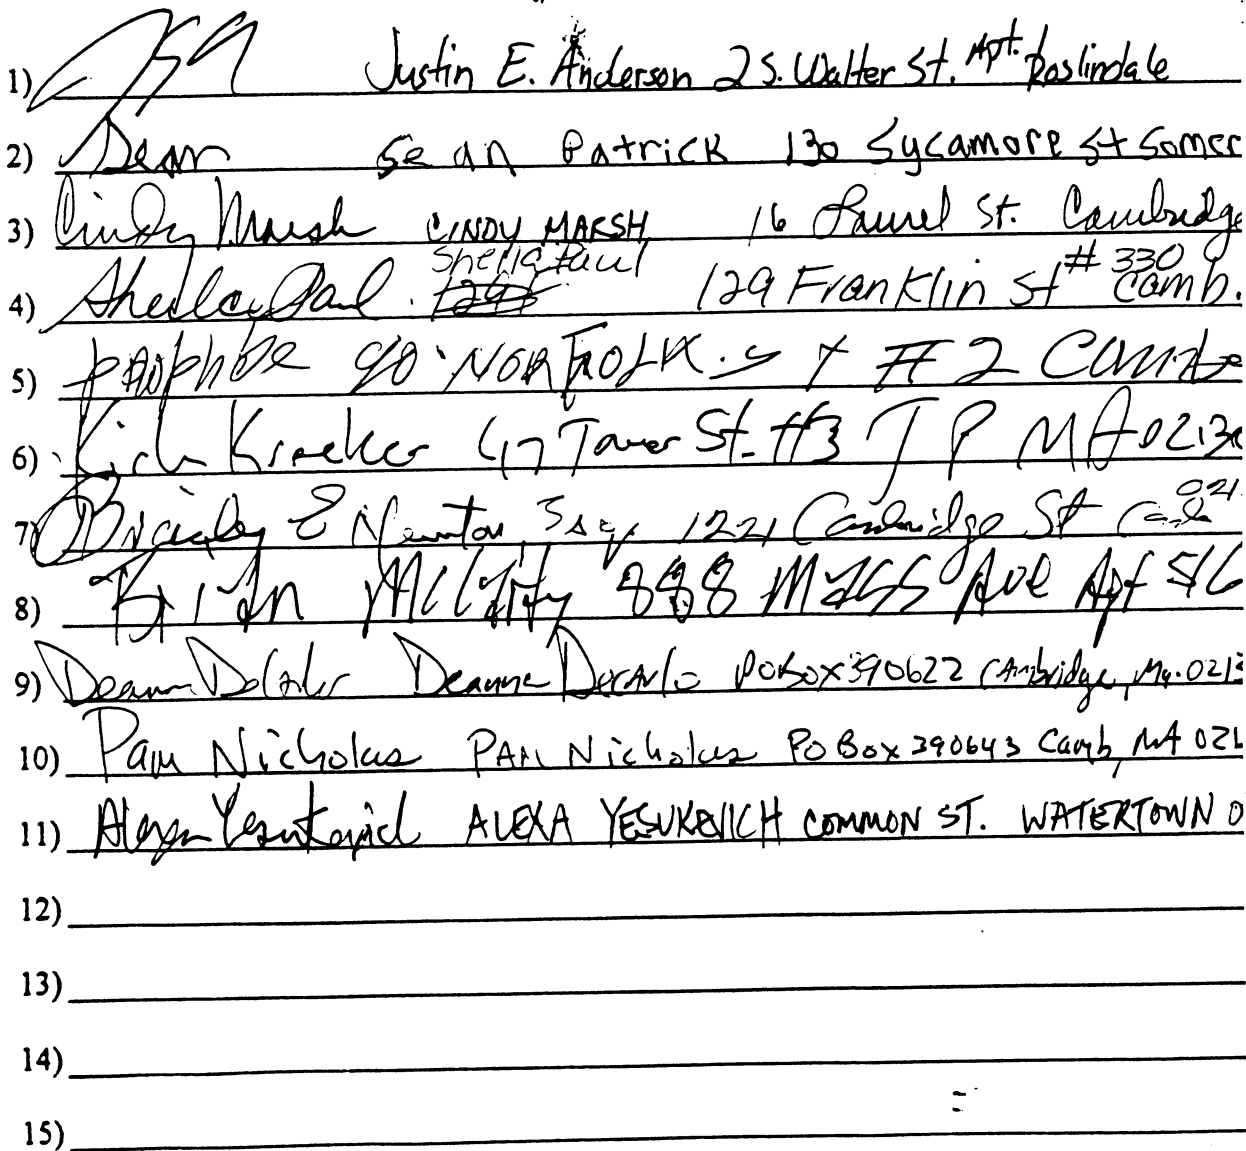 1) Justin E. Anderson 2 S. Walter St. Apt. Roslindale
2) Sean Sean Patrick 130 Sycamore St Somer
3) Cindy Marsh CINDY MARSH 16 Laurel St. Cambridge
Sheila Paul # 330
4) Sheila Paul 129 Franklin St Camb.
5) 90 NORFOLK St #2 Camb
6) Kirk 47 Tower St. #3 JP MA 0213
021
7) E Newton, Esq. 1221 Cambridge St Camb
8) Brian 888 Mass Ave Apt 516
9) Deanna DeCarlo Deanna DeCarlo PO Box 390622 Cambridge, Ma. 0213
10) Pam Nicholas PAM Nicholas PO Box 390643 Camb, MA 021
11) Alexa Yesukevich ALEXA YESUKEVICH COMMON ST. WATERTOWN 0
12)
13)
14)
15)